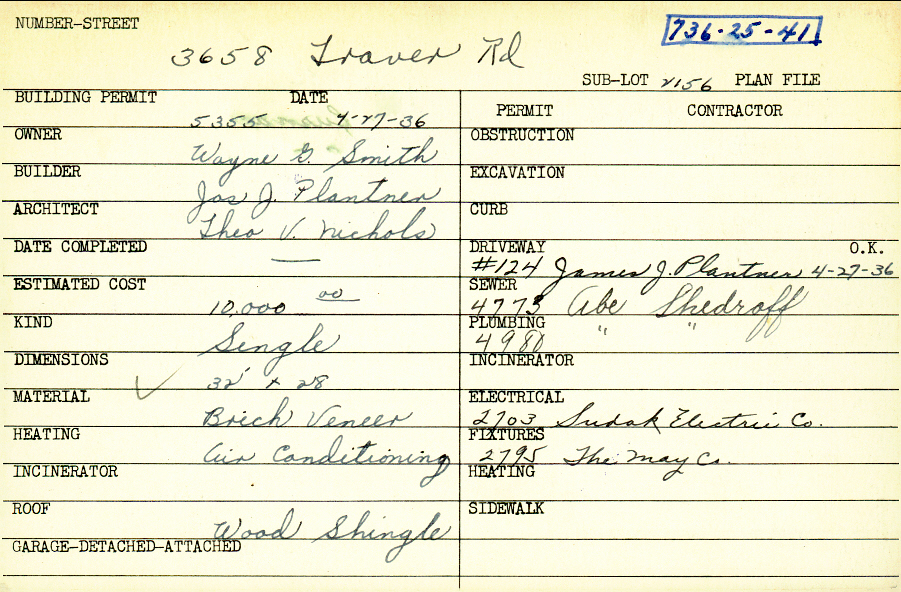 NUMBER-STREET
736-25-41
3658 Traver Rd
SUB-LOT 2156 PLAN FILE
BUILDING PERMIT DATE
5355 4-27-36
OWNER
Wayne G. Smith
BUILDER
Jas J. Plantner
ARCHITECT
Theo V. Nichols
DATE COMPLETED
—
ESTIMATED COST
10,000 00
KIND
Single
DIMENSIONS
✓ 32' x 28
MATERIAL
Brick Veneer
HEATING
Air Conditioning
INCINERATOR
ROOF
Wood Shingle
GARAGE-DETACHED-ATTACHED
PERMIT CONTRACTOR
OBSTRUCTION
EXCAVATION
CURB
DRIVEWAY O.K.
#124 James J. Plantner 4-27-36
SEWER
4773 Abe Shedroff
PLUMBING
4980 " "
INCINERATOR
ELECTRICAL
2703 Sudak Electric Co.
FIXTURES
2795 The May Co.
HEATING
SIDEWALK